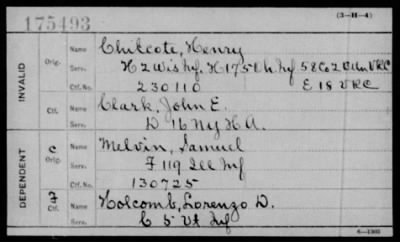 175493
(3—H—4)
INVALID
Orig. Name Chilcote, Henry
Serv. H 2 Wis Inf. H 175 Oh Inf 58 Co 2 Batn VRC
Ctf. No. 230110 E 18 VRC
Ctf. Name Clark, John E.
Serv. D 16 Ny H A.
DEPENDENT
C Orig. Name Melvin, Samuel
Serv. F 119 Ill Inf
Ctf. No. 130725
F Ctf. Name Holcomb, Lorenzo D.
Serv. C 5 Vt Inf